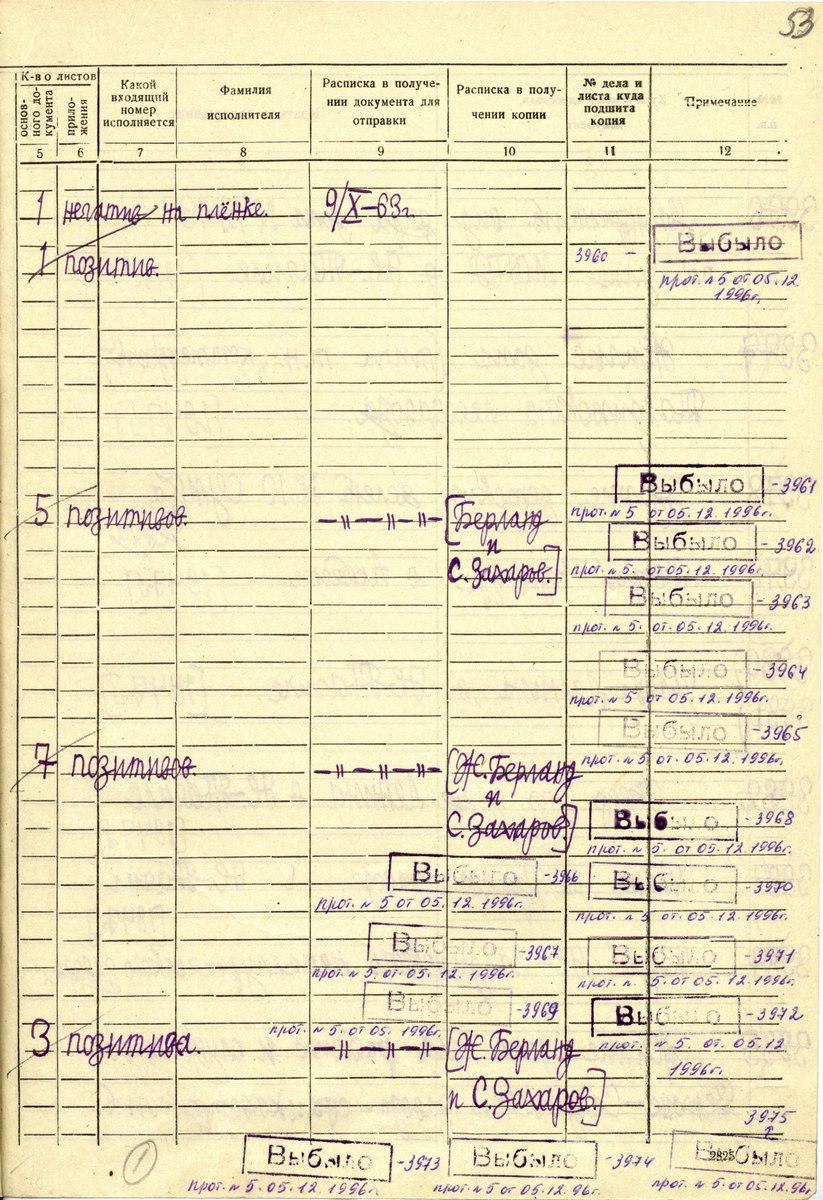 53
К-во листов
основного документа
приложения
Какой входящий номер исполняется
Фамилия исполнителя
Расписка в получении документа для отправки
Расписка в получении копии
№ дела и листа куда подшита копия
Примечание
5 6 7 8 9 10 11 12
1 негатив на плёнке. 9/X-63г.
1 позитив. 3960 – Выбыло
прот. №5 от 05.12.
1996г.
Выбыло -3961
5 позитивов. —"—"—"— [Берланд прот. №5 от 05.12.1996г.
и Выбыло -3962
С. Захаров.] прот. №5. от 05.12.1996г.
Выбыло -3963
прот. №5. от. 05.12.1996г.
Выбыло -3964
прот. №5 от 05.12.1996г.
Выбыло -3965
7 позитивов. —"—"—"— [Ж. Берланд прот. №5. от 05.12.1996г.
и
С. Захаров.] Выбыло -3968
прот. №5. от 05.12.1996г.
Выбыло -3966 Выбыло -3970
прот. №5 от 05.12.1996г. прот. №5 от 05.12.1996г.
Выбыло -3967 Выбыло -3971
прот. №5 от. 05.12.1996г. прот. №5 от 05.12.1996г.
Выбыло -3969 Выбыло -3972
прот. №5 от 05. 1996г.
3 позитива. —"—"—"— [Ж. Берланд прот. №5. от. 05.12
1996г.
и С. Захаров.]
3975
1 Выбыло -3973 Выбыло -3974 Выбыло 2825
прот. №5. 05.12.1996г. прот. №5 от 05.12.96г. прот. №5 от 05.12.96г.